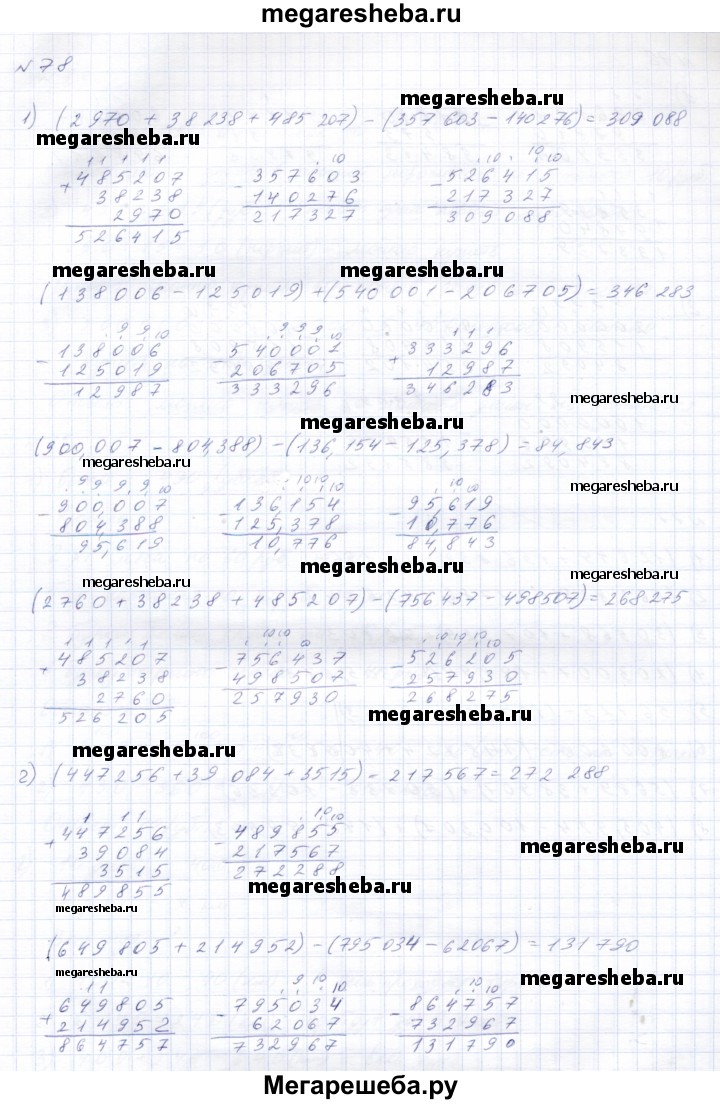 megaresheba.ru
№ 78
megaresheba.ru
1) (2 970 + 38 238 + 485 207) - (357 603 - 140 276) = 309 088
megaresheba.ru
1 1 1 1 1
+ 485207
38238
2970
526415
. 10
- 357603
140276
217327
. 10 . 10 10
- 526415
217327
309088
megaresheba.ru megaresheba.ru
(138 006 - 125 019) + (540 001 - 206 705) = 346 283
. 9 9 10
- 138006
125019
12987
. 9 9 9 10
- 540001
206705
333296
1 1 1
+ 333296
12987
346283
megaresheba.ru
megaresheba.ru
(900,007 - 804,388) - (136,154 - 125,378) = 84,843
megaresheba.ru
megaresheba.ru
. 9 9 9 9 10
- 900,007
804,388
95,619
. 10 10 . . 10
- 136,154
125,378
10,776
. 10
- 95,619
10,776
84,843
megaresheba.ru
megaresheba.ru
megaresheba.ru
(2760 + 38238 + 485207) - (756437 - 498507) = 268275
1 1 1 1 1
+ 485207
38238
2760
526205
. 10 10 . 10
- 756437
498507
257930
. 10 10 10 10
- 526205
257930
268275
megaresheba.ru
megaresheba.ru
2) (447 256 + 39 084 + 3515) - 217 567 = 272 288
1 1 1
+ 447256
39084
3515
489855
. 10 10
- 489855
217567
272288
megaresheba.ru
megaresheba.ru
megaresheba.ru
(649 805 + 214 952) - (795 034 - 62067) = 131 790
megaresheba.ru
megaresheba.ru
1 1
+ 649805
214952
864757
. 9 10 . 10
- 795034
62067
732967
. 10 . 10
- 864757
732967
131790
megaresheba.ru
Мегарешеба.ру